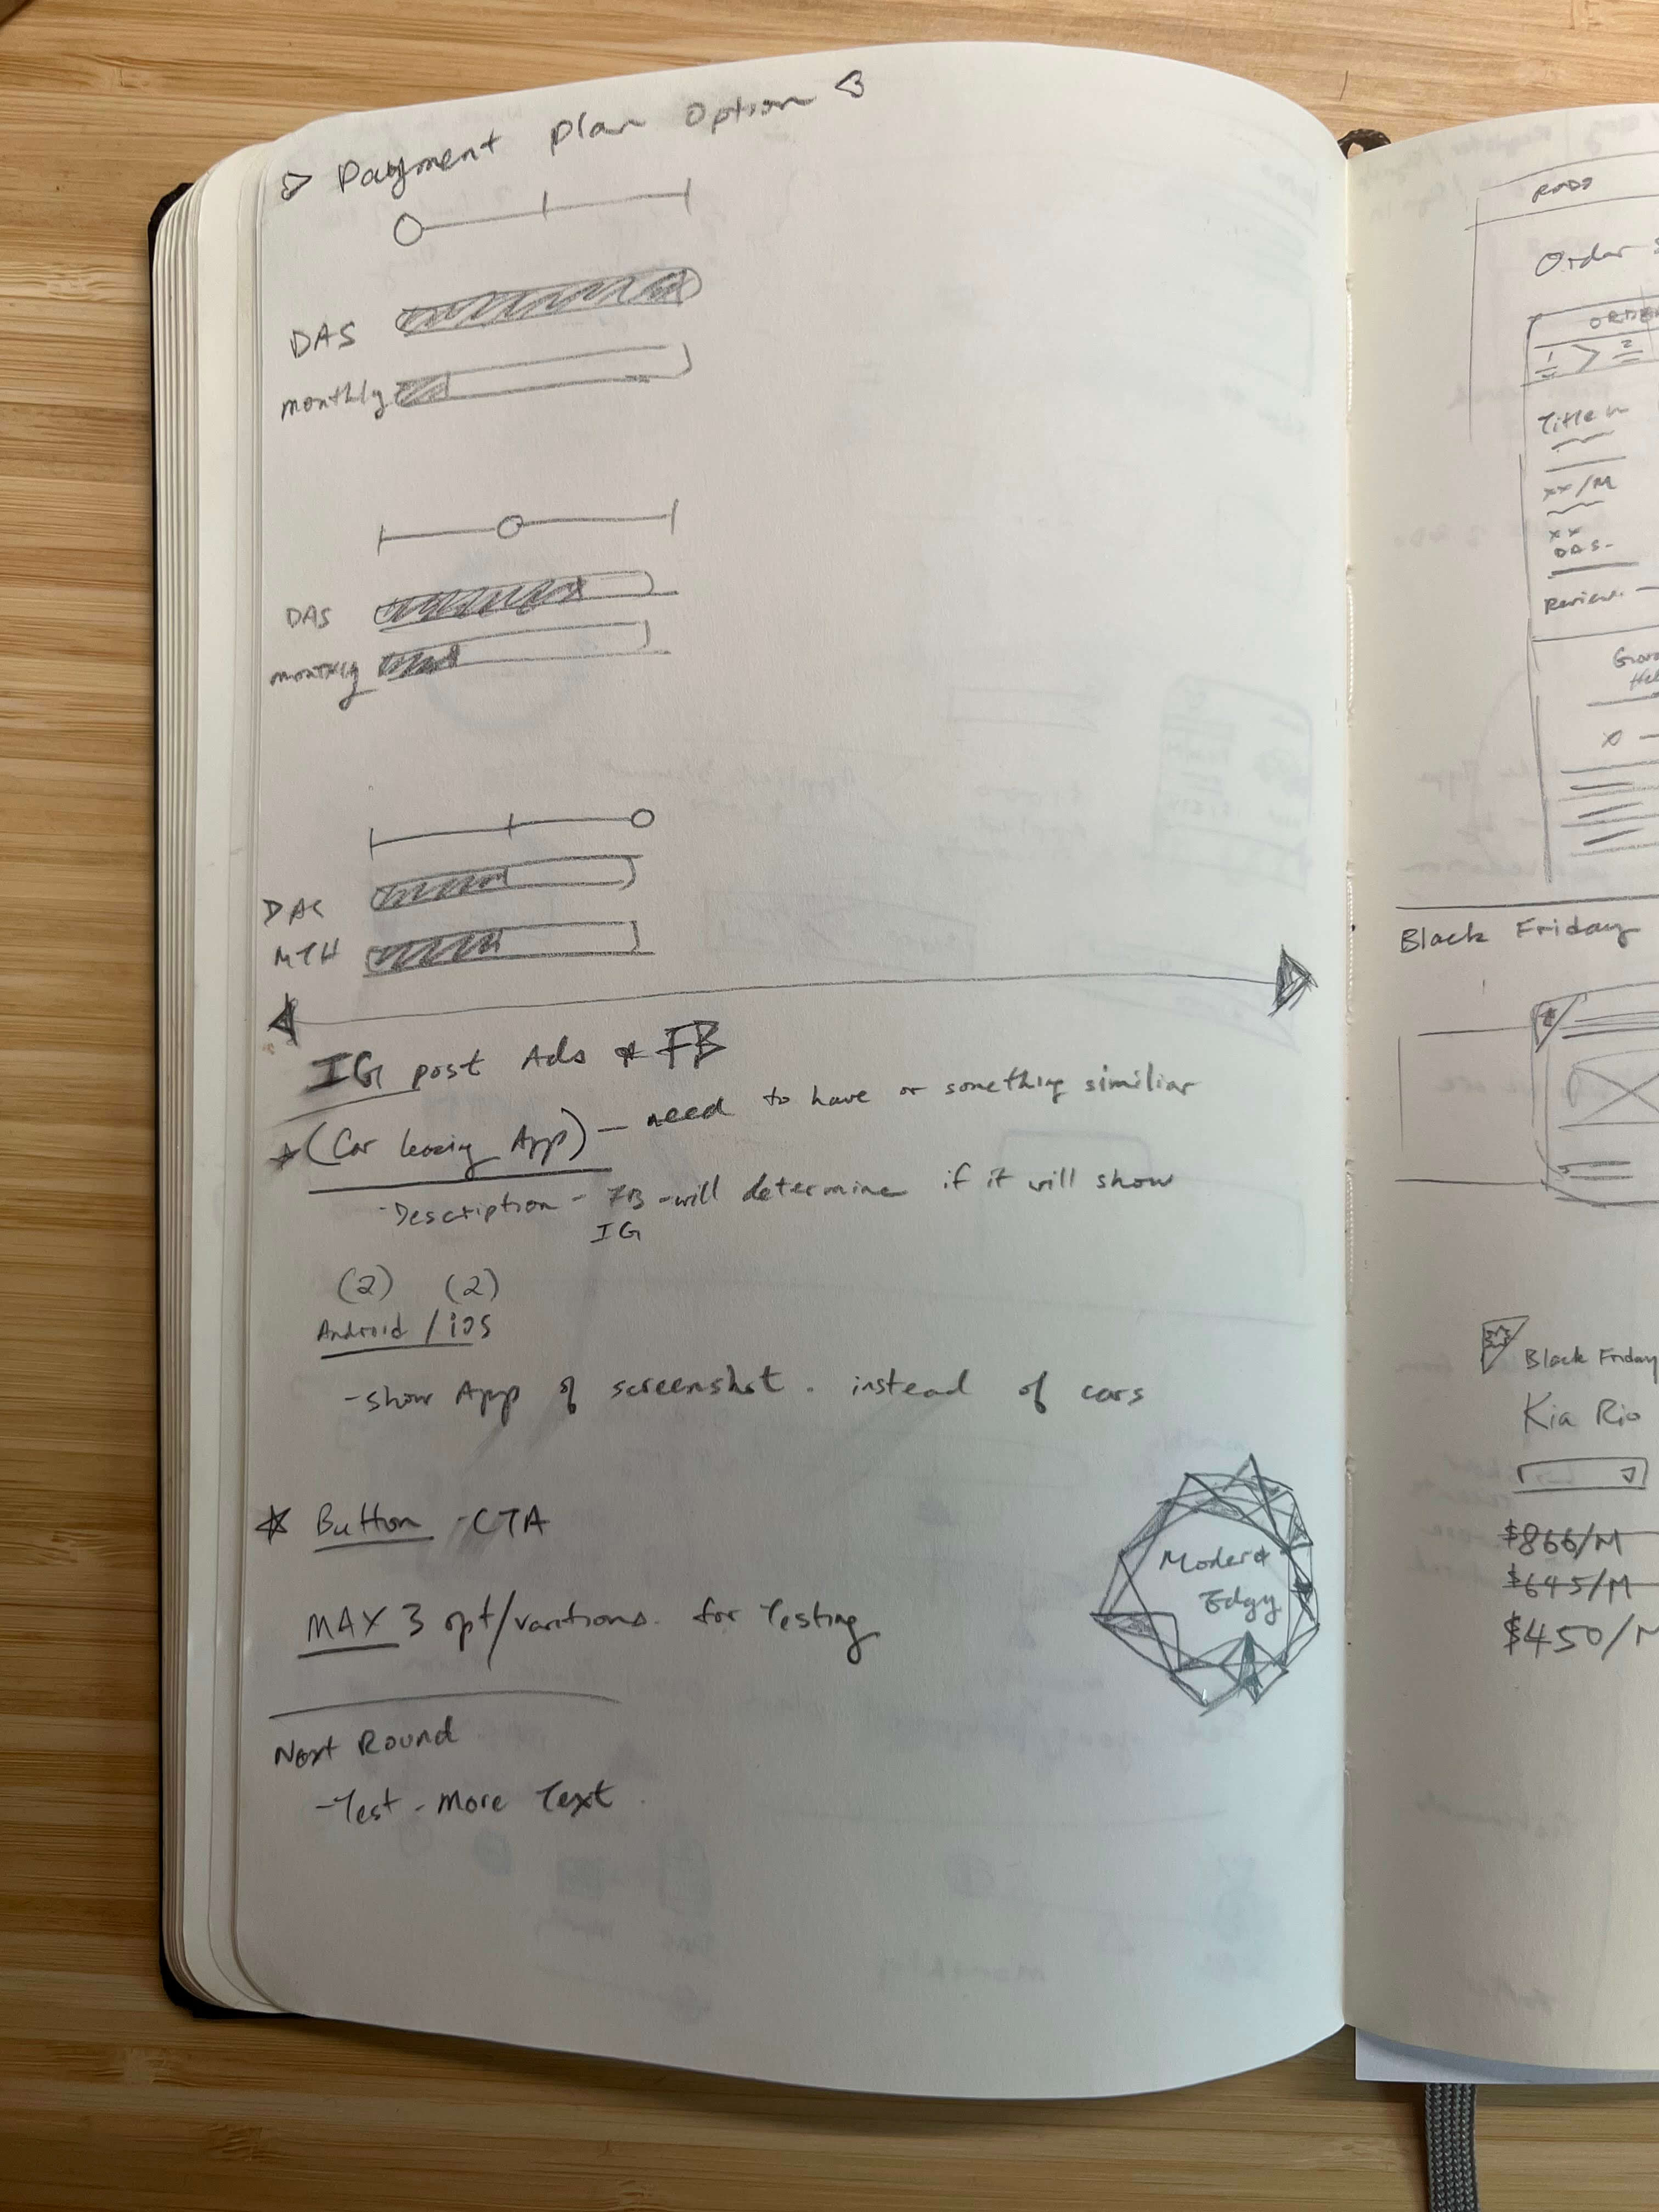 Payment Plan Option
DAS
monthly
DAS
monthly
DAS
MTH
IG post Ads & FB
(Car leasing App) — need to have or something similiar
- Description - FB - will determine if it will show
IG
(2) (2)
Android / iOS
- show App of screenshot. instead of cars
Button - CTA
MAX 3 opt/varitions. for Testing
Modern
Edgy
Next Round
- Test - More Text.
Order
1 > 2
Title
xx/M
xx
DAS.
Review
Black Friday
Black Friday
Kia Rio
$866/M
$645/M
$450/M